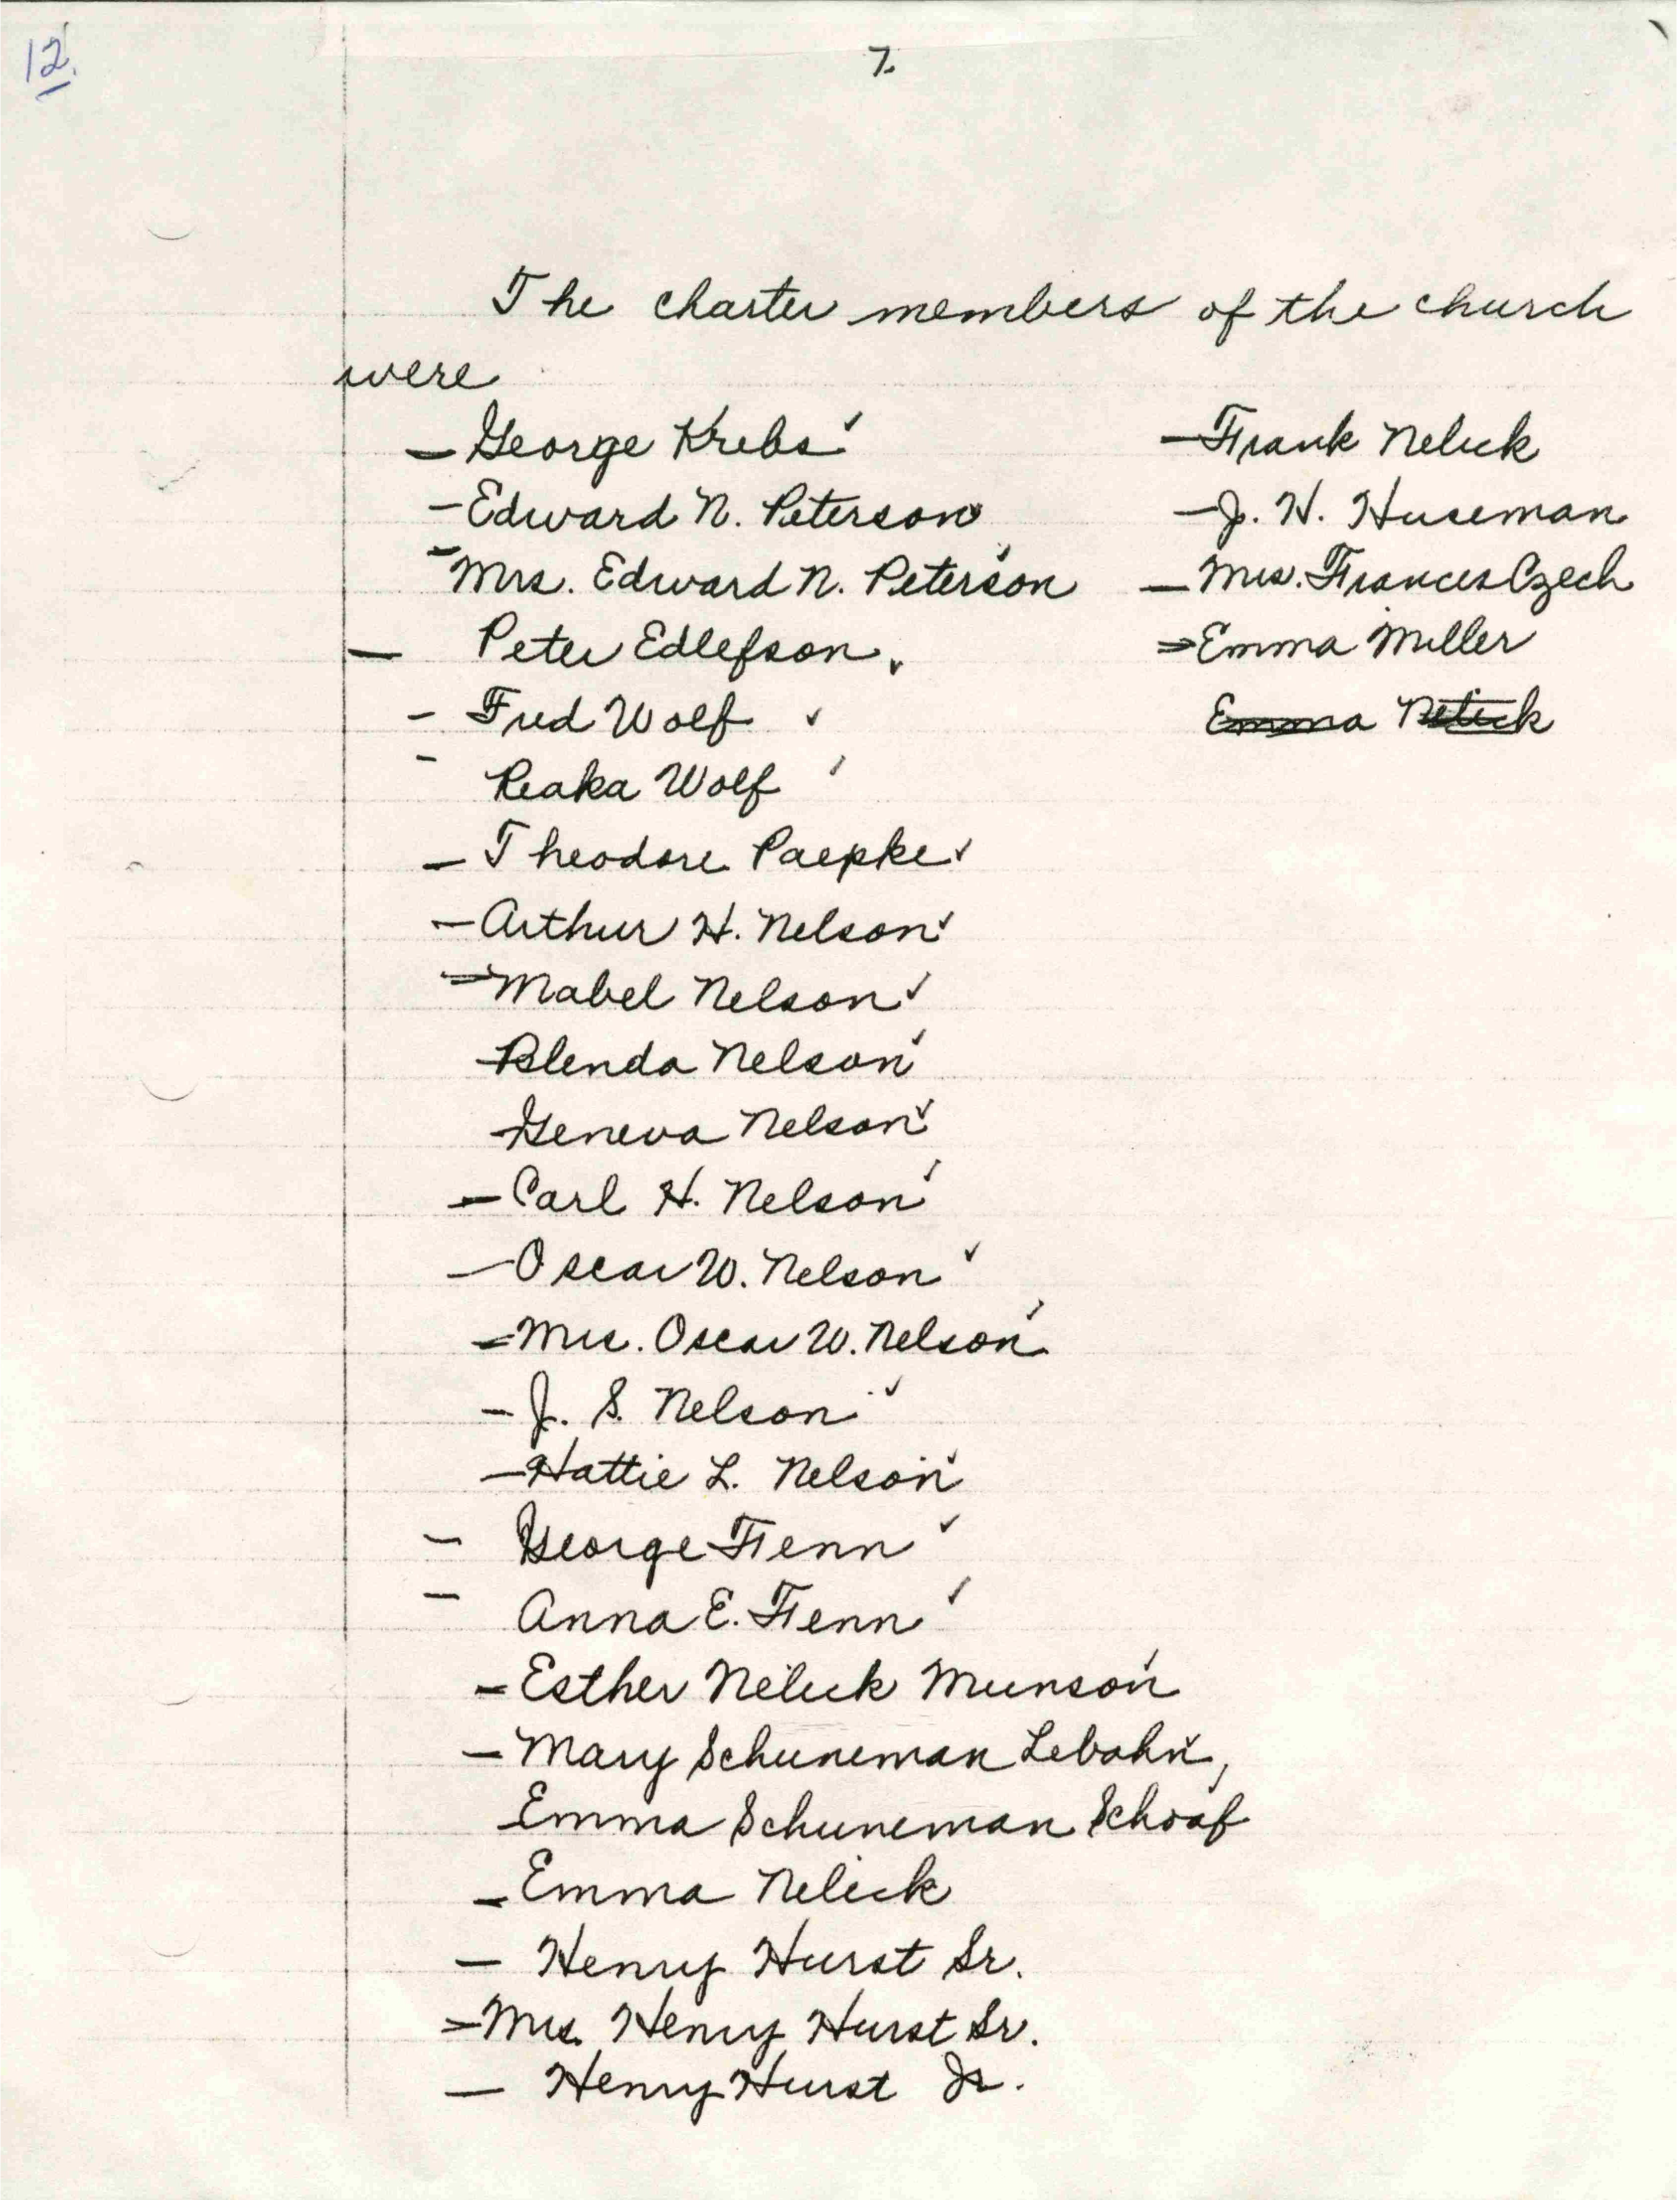 12.
7.
The charter members of the church
were
- George Krebs ✓
- Edward N. Peterson
- Mrs. Edward N. Peterson
- Peter Edlefson.
- Fred Wolf ✓
- Reaka Wolf
- Theodore Paepke ✓
- Arthur H. Nelson ✓
- Mabel Nelson ✓
- Blenda Nelson ✓
- Geneva Nelson ✓
- Carl H. Nelson ✓
- Oscar W. Nelson ✓
- Mrs. Oscar W. Nelson ✓
- J. S. Nelson ✓
- Hattie L. Nelson ✓
- George Fenn ✓
- Anna E. Fenn ✓
- Esther Nelick Munson ✓
- Mary Schuneman Lebahn ✓
Emma Schuneman Schoaf
- Emma Nelick
- Henry Hurst Sr.
- Mrs. Henry Hurst Sr.
- Henry Hurst Jr.
- Frank Nelick
- J. H. Huseman
- Mrs. Frances Czech
- Emma Miller
Emma Nelick